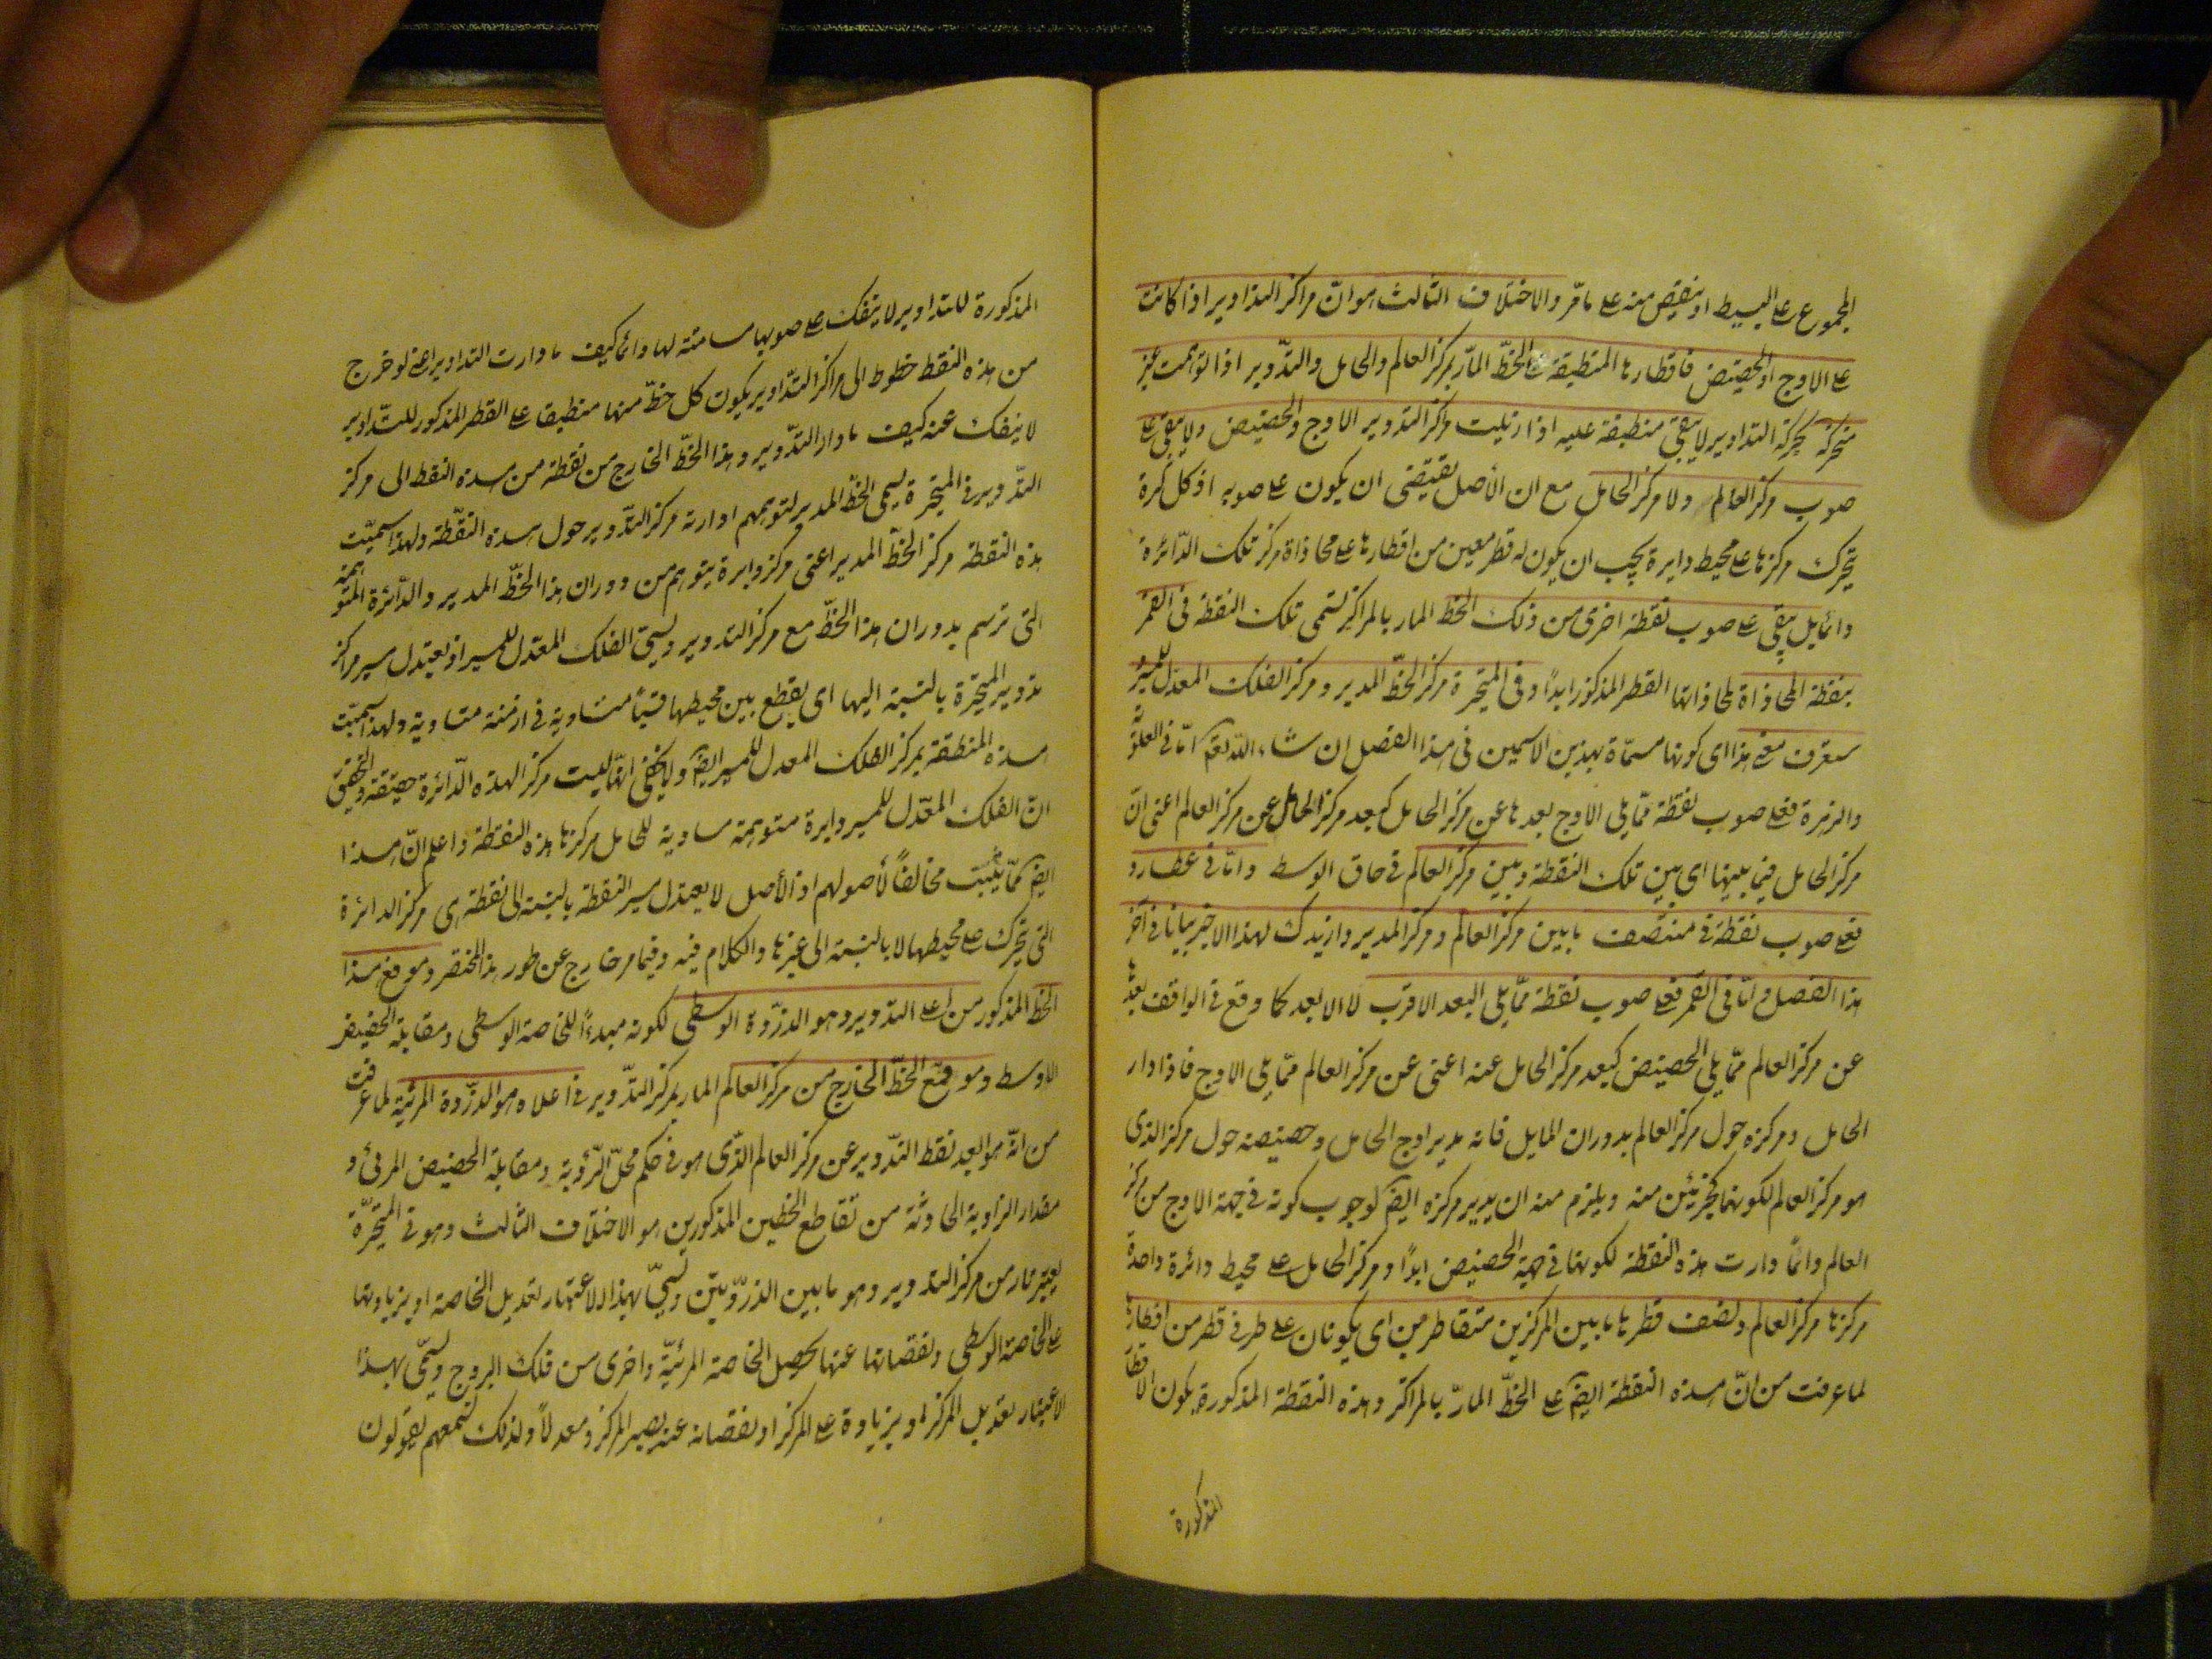 المجموع على البسيط او ينقص منه على ما مرّ والاختلاف الثالث هو انّ مراكز التداوير اذا كانت
على الاوج او الحضيض فاقطارها المنطبقة على الخطّ المارّ بمركز العالم والحامل والتّدوير اذا توهمت غير
متحركة بحركة التداوير لا يبقى منطبقة عليه اذا زايلت مراكز التدوير الاوج والحضيض ولا يبقى على
صوب مركز العالم ولا مركز الحامل مع ان الأصل يقتضى ان يكون على صوبه اذ كل كرة
يتحرك مركزها على محيط دايرة يجب ان يكون له قطر معين من اقطارها على محاذاة مركز تلك الدّائرة
دائما بل يبقى على صوب نقطة اخرى من ذلك الخط المار بالمراكز تسمى تلك النقطة فى القمر
بنقطة المحاذاة لمحاذاتها القطر المذكور ابدًا وفى المتحيرة مركز الخطّ المدير ومركز الفلك المعدّل للمسير و
ستعرف معنى هذا اى كونها مسمّاة بهذين الاسمين فى هذا الفصل ان شاء الله تعم امّا فى العلويّة
والزهرة فعلى صوب نقطة ممّا يلى الاوج بعدها عن مركز الحامل كبعد مركز الحامل عن مركز العالم اعنى انّ
مركز الحامل فيما بينها اى بين تلك النقطة وبين مركز العالم فى حاق الوسط وامّا فى عطارد
فعلى صوب نقطة فى منتصف ما بين مركز العالم ومركز المدير وازيدك لهذا الاخير بيانا فى آخر
هذا الفصل و امّا فى القمر فعلى صوب نقطة ممّا يلى البعد الاقرب لا الابعد كما وقع فى الواقف بعدها
عن مركز العالم ممّا يلى الحضيض كبعد مركز الحامل عنه اعنى عن مركز العالم ممّا يلى الاوج فاذا دار
الحامل ومركزه حول مركز العالم بدوران المايل فانه يدير اوج الحامل وحضيضه حول مركز الذى
هو مركز العالم لكونهما كجزئين منه ويلزم منه ان يدير مركزه ايض لوجوب كونه فى جهة الاوج من مركز
العالم دائمًا دارت هذه النقطة لكونها فى جهة الحضيض ابدًا ومركز الحامل على محيط دائرة واحدة
مركزها مركز العالم ونصف قطرها ما بين المركزين متقاطرين اى يكونان على طرفى قطر من اقطارها
لما عرفت من انّ هذه النقطة ايض على الخطّ المارّ بالمراكز وهذه النقطة المذكورة يكون الاقطار
المذكورة
المذكورة للتداوير لا ينفك على صوبها مسامتة لها دائما كيف ما دارت التداوير اعنى لو خرج
من هذه النقط خطوط الى مراكز التّداوير يكون كل خطّ منها منطبقا على القطر المذكور للتّداوير
لا ينفك عنه كيف ما دار التّدوير وهذا الخطّ الخارج من نقطة من هذه النقط الى مركز
التّدوير فى المتحيرة يسمى الخطّ المدير لتوهمهم ادارته مركز التّدوير حول هذه النقطة ولهذا سمّيت
هذه النقطة مركز الخطّ المدير اعنى مركز دايرة يتوهم من دوران هذا الخطّ المدير والدّائرة المتوهمة
التى ترسم بدوران هذا الخطّ مع مركز التدوير ويسمى الفلك المعدّل للمسير اذ يعتدل سير مراكز
تدوير المتحيّرة بالنسبة اليها اى يقطع بين محيطها قسيّاً متساوية فى ازمنة متساوية ولهذا سمّيت
هذه المنطقة بمركز الفلك المعدل للمسير ايض ولا يخفى انّها ليست مركز الهذه الدّائرة حقيقة والتحقيق
انّ الفلك المعدّل للمسير دايرة متوهمة مساوية للحامل مركزها هذه النقطة واعلم انّ هذا
ايض ممّا يثبت مخالفًا لأصولهم اذ الأصل لا يعتدل سير النقطة بالنسبة الى نقطة هى مركز الدائرة
التى يتحرك على محيطها لا بالنسبة الى غيرها والكلام فيه وفيما مر خارج عن طور هذا المختصر وموقع هذا
الخط المذكور من اعلى التدوير هو الذروّة الوسطى لكونه مبدءاً للخاصة الوسطى ومقابلة الحضيض
الاوسط وموقع الخطّ الخارج من مركز العالم المار بمركز التّدوير فى اعلاه هو الذّروة المرئيّة لما عرفت
من انّه هو ابعد نقط التّدوير عن مركز العالم الذّى هو فى حكم محلّ الرّؤية ومقابلة الحضيض المرئى و
مقدار الزاوية الحادثة من تقاطع الخطين المذكورين هو الاختلاف الثالث وهو فى المتحيّرة
يعتبر تارة من مركز التدوير وهو ما بين الذروّتين ويسمّى بهذا الاعتبار تعديل الخاصة اذ بزيادتها
على الخاصة الوسطى ونقصانها عنها يحصل الخاصة المرئيّة واخرى من فلك البروج ويسمّى بهذا
الاعتبار تعديل المركز اذ بزيادة على المركز او نقصانه عنه يصير المركز معدلاً ولذلك تسمعهم يقولون